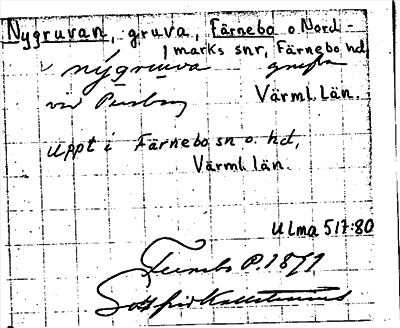 Nygruvan, gruva, Färnebo o Nord-
marks snr, Färnebo hd,
nygruva
Värml. Län.
vid
Uppt i Färnebo sn o. hd,
Värml. län.
Ulma 517:80
P. 1871
Gottfrid Kallstenius